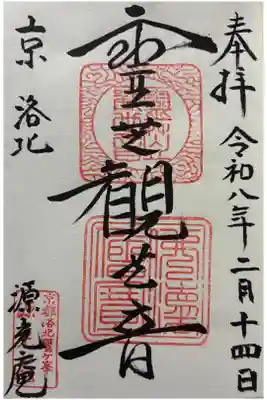 奉拝 令和八年二月十四日
霊芝観世音
京 洛北
源光庵
京都洛北鷹ヶ峯